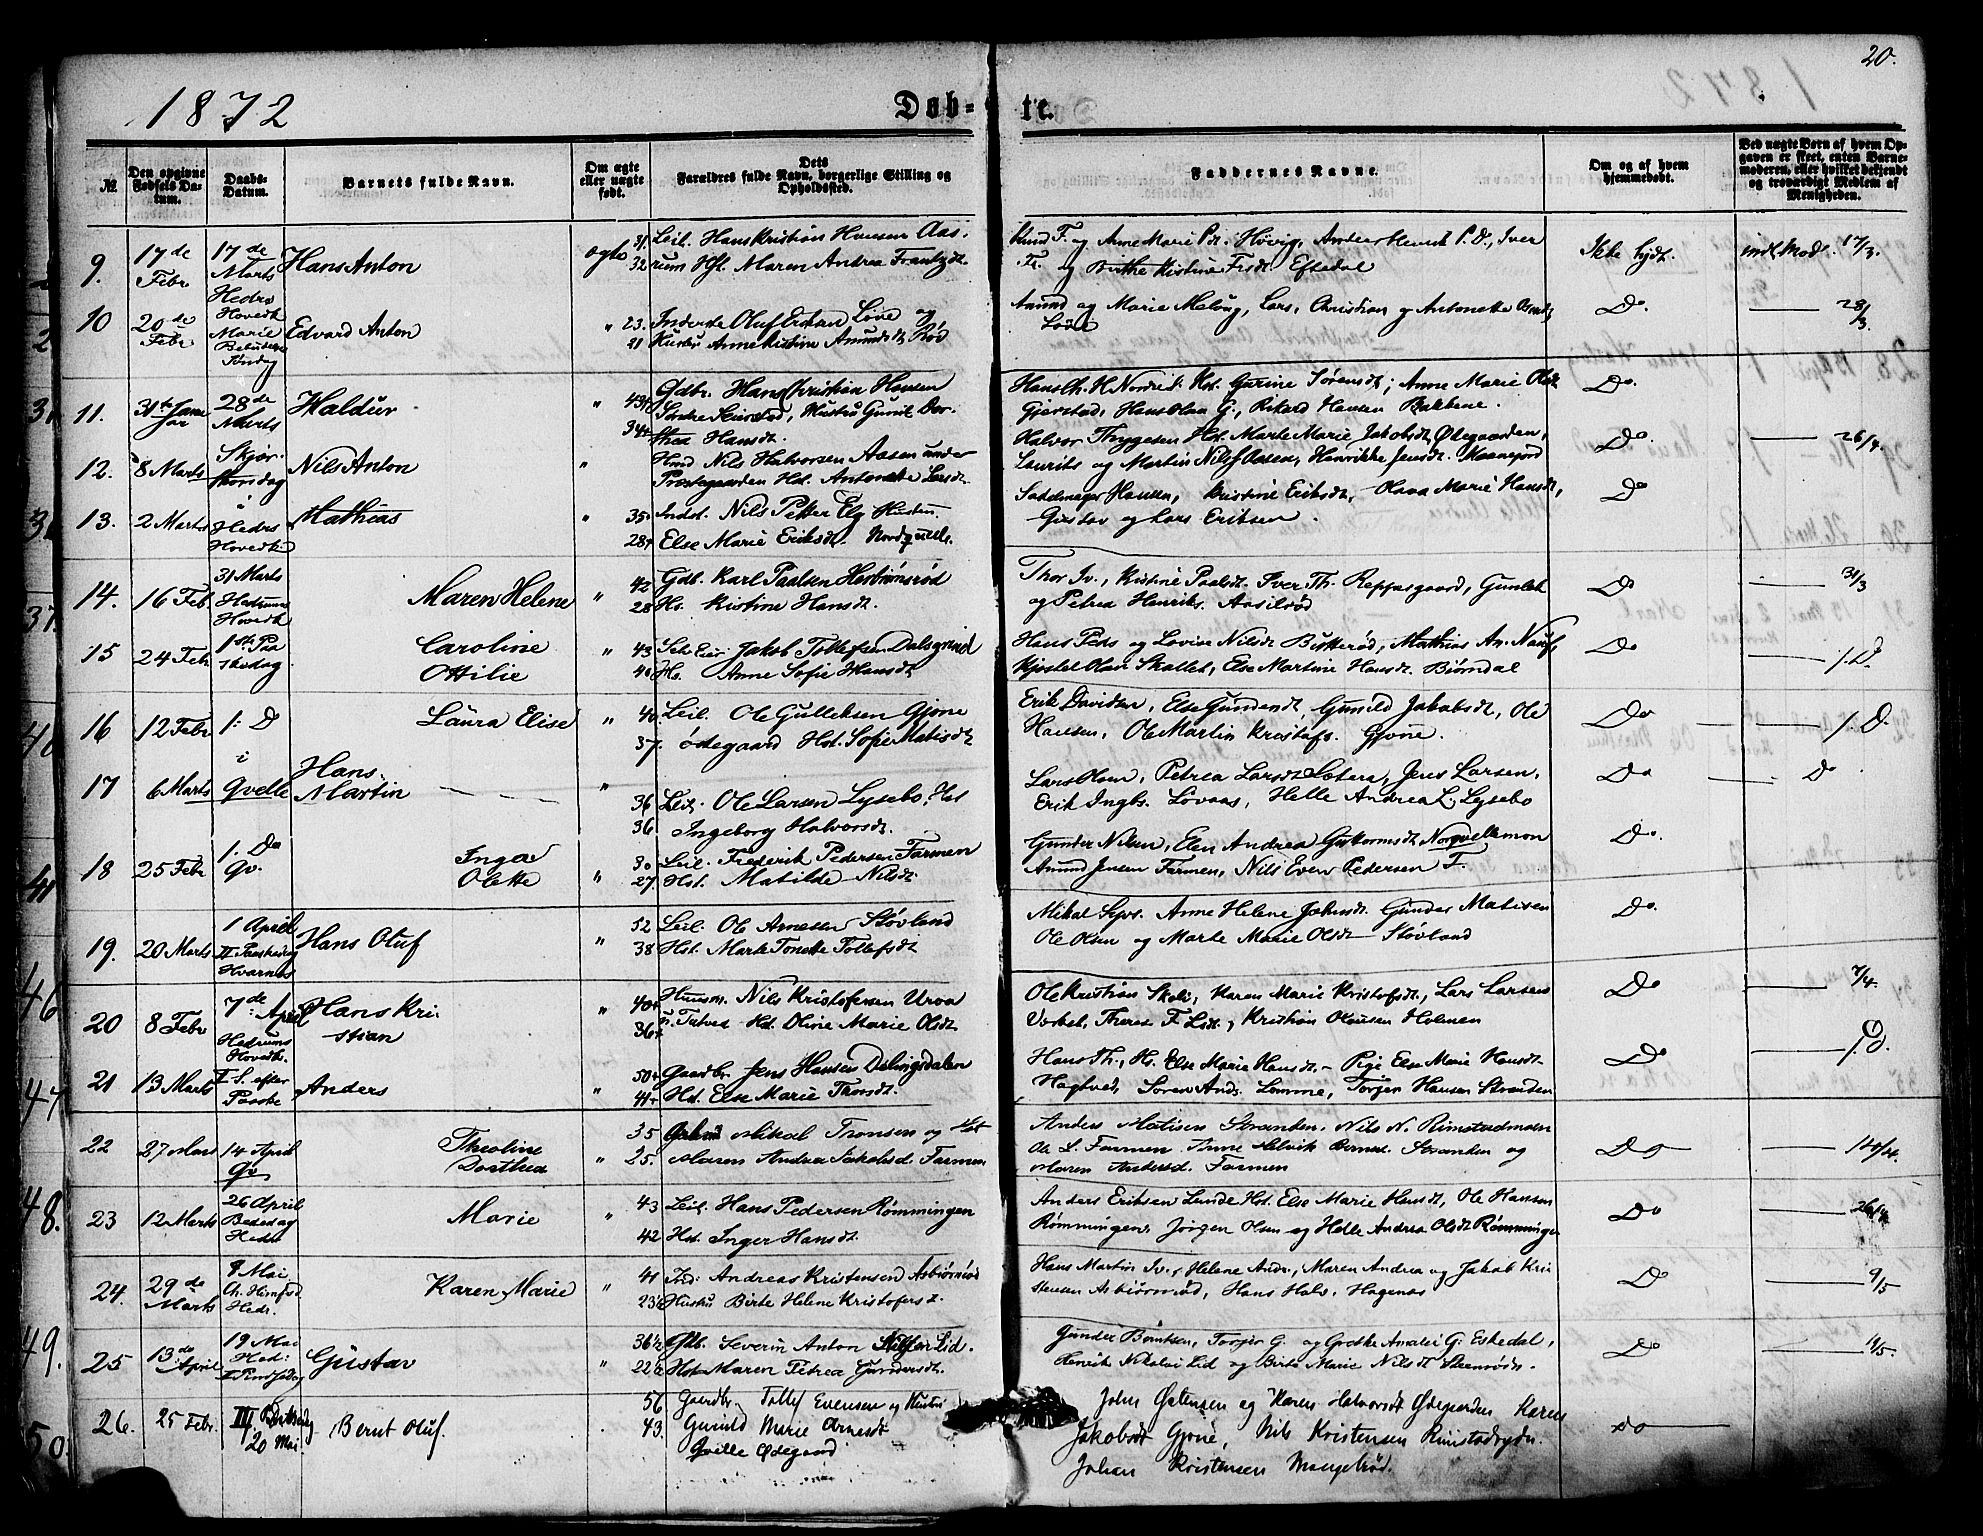 20.
1872
Døb-te.
№
Den opgivne Fødsels Datum.
Daabs-Datum.
Barnets fulde Navn.
Om ægte eller uægte født.
Dets Forældres fulde Navn, borgerlige Stilling og Opholdssted.
Faddernes Navne.
Om og af hvem hjemmedøbt.
Ved uægte Børn af hvem Opgaven er skeet, enten Barnemoderen, eller hvilket bekjendt og troværdigt Medlem af Menigheden.
9. 17de Febr 17de Marts Hedrs Hovedk Hans Anton ægte 31. Leil. Hans Kristian Hansen Aas-
32 rum Hst. Maren Andrea Frantzdt
Knud F. og Anne Marie Pdt. Høvig, Anders P. D., Iver
Fr. og Birthe Kistine Eftedal
Ikke hjdt. Mod. 17/3.
10 20de Febr Marie Bebudelse Søndag Edvard Anton " 23. Inderste Oluf Løve og
21 Hustru Anne Kistine Amundsdt Rød
Amund og Marie Meløug, Lars, Christian og Antonette
Løve
Do. 28/3.
11. 31te Januar 28de Marts Haldur " 43 Gdbr. Hans Christian Hansen
Søndre Seierstad, Hustru Gunil Dor-
34 thea Hansdt.
Hans Ch. H. Nordre: Hst. Gurine Sørensdt; Anne Marie Olsdt
Gjerstad, Hans Olsen G., Rikard Hansen Bakkene.
Do.
12. 8 Marts Skjærthorsdag Nils Anton " Hmd Nils Halvorsen Aasen under
Præstegaarden Hst. Antonette Larsdt.
Halvor Thygesen Hst. Marte Marie Jakobsdt Ødegaarden,
Laurits og Martin Nilss Aasen, Henrikke Jensdt.
Do. 26/4.
13. 2 Marts Hedrs Hovedk. Mathias " 35. Indst. Nils Petter Elg Hustru
28 Else Marie Eriksdt. Nordqvelle.
Sadelmager Hansen, Kristine Eriksdt, Olava Marie Hansdt,
Gustav og Lars Eriksen.
Do
14. 16 Feb 31 Marts Hedrums Hovedk Maren Helene " 42 Gdb. Karl Paulsen
28 Hs. Kistine Hansdt.
Thor Iv., Kistine Paulsdt. Iver Th. Reppesgaard, Gunlek
og Petrea Henriks. Aasilrød
Do 31/3
15 24 Feb 1ste Paaskedag Caroline Ottilie " 43 Jakob Tollefsen Dalsgrind
40 Hs. Anne Sofie Hansdt
Hans Peds og Lovise Nilsdt Bitterød, Mathias An.
Kjøstel Olsen Skalleb, Else Martine Hansdt. Bjørndal
Do 1. D.
16 12 Febr 1: D Laura Elise " 40. Leil. Ole Gulleksen Gjone
37. Ødegaard Hst. Sofie Matisdt
Erik Davidsen, Else Gundersdt, Gunild Jakobsdt, Ole
Hansen, Ole Martin Kristofs. Gjone.
Do 1. D.
17 6 Marts i Qvelle Hans Martin " 36 Leil. Ole Larsen Lysebo, Hst
36 Ingeborg Halvorsdt.
Lars Olsen, Petrea Larsdt Jens Larsen,
Erik Ingbs. Lovaas, Helle Andrea L. Lysebo
Do Do
18 25 Febr 1. Do Qv. Inga Olette " 30 Leil. Frederik Pedersen Farmen
27. Hst. Matilde Nilsdt.
Gunder Nilsen, Elen Andrea Guttormsdt Norqvellemon
Amund Jensen Farmen, Nils Even Pedersen F.
Do.
19. 20 Marts 1 April II Paaskedag Hvarnes Hans Oluf " 52 Leil. Ole Arnesen Støvland
38 Hst. Marte Tonette Tollefsdt
Mikal Syvs. Anne Helene Johnsdt. Gunder Matisen
Ole Olsen og Marte Marie Olsdt Støvland
Do.
20 8 Febr 7de April Hedrums Hovedk. Hans Kristian " 40 Huusm. Nils Kristofersen Urva
36 u. Tutved Hst. Oline Marie Olsdt
Ole Kristian Skoli, Karen Marie Kristofsdt, Lars Larsen
Vorbel, Therese F. Lsdt, Kristian Olausen Holmen
Do 7/4.
21 13 Marts I. S. efter Paaske Anders " 50 Gaardbr. Jens Hansen Dalingsdalen
44 Hst. Else Marie Torsdt.
Hans Th., Hs. Else Marie Hansdt. - Pige Else Marie Hansdt.
Hagtved, Søren Ands. Lomme, Torger Hansen Stranden
Do 1. D.
22 27 Mars 14 April Qv Theoline Dorthea " 35 Mikal Tronsen og Hst
25. Maren Andrea Jakobsd. Farmen
Anders Matisen Stranden, Nils N. Rimstadmoen
Ole L. Farmen Stranden og
Maren Andersd. Farmen
Do 14/4.
23 12 Marts 26 April Bededag Hedr Marie " 43 Leil. Hans Pedersen Rømmingen
42 Hst. Inger Hansdt.
Anders Eriksen Lunde Hst. Else Marie Hansdt, Ole Hansen
Rømmingen, Jørgen Olsen og Helle Andrea Olsdt Rømminge
Do 26/4
24. 29de Marts 9 Mai Ch. Himfsd. Hedr. Karen Marie " 41 Ind: Andreas Kristensen Asbiørnrød
23½ Hustru Birte Helene Kristofersd.
Hans Martin Iv., Helene Andr., Maren Andrea og Jakob Kri
stensen Asbiørnrød, Hans Halv. Hagenæs
Do 9/5
25 13de April 19 Mai Hed: I Pindsedag Gustav " 36½ Gdb. Severin Anton Lid.
22½ Hst. Maren Petrea Gundersdt.
Gunder Torger G. og Grethe Amalie G. Eskedal,
Henrik Nikolai Lid og Birte Marie Nilsdt Steenrød.
Do 19/5.
26. 25 Febr. III 20 Mai. Bernt Oluf. 56 Gaardbr. Tollef Evensen og Hustru
43. Gunild Marie Arnesdt
Qvelle Ødegaard
John Østensen og Karen Halvorsdt Ødegarden Karen
Jakobsdt Gjone, Nils Kristensen Rimstadbygdn.
Johan Kristensen Mangelrød.
Do